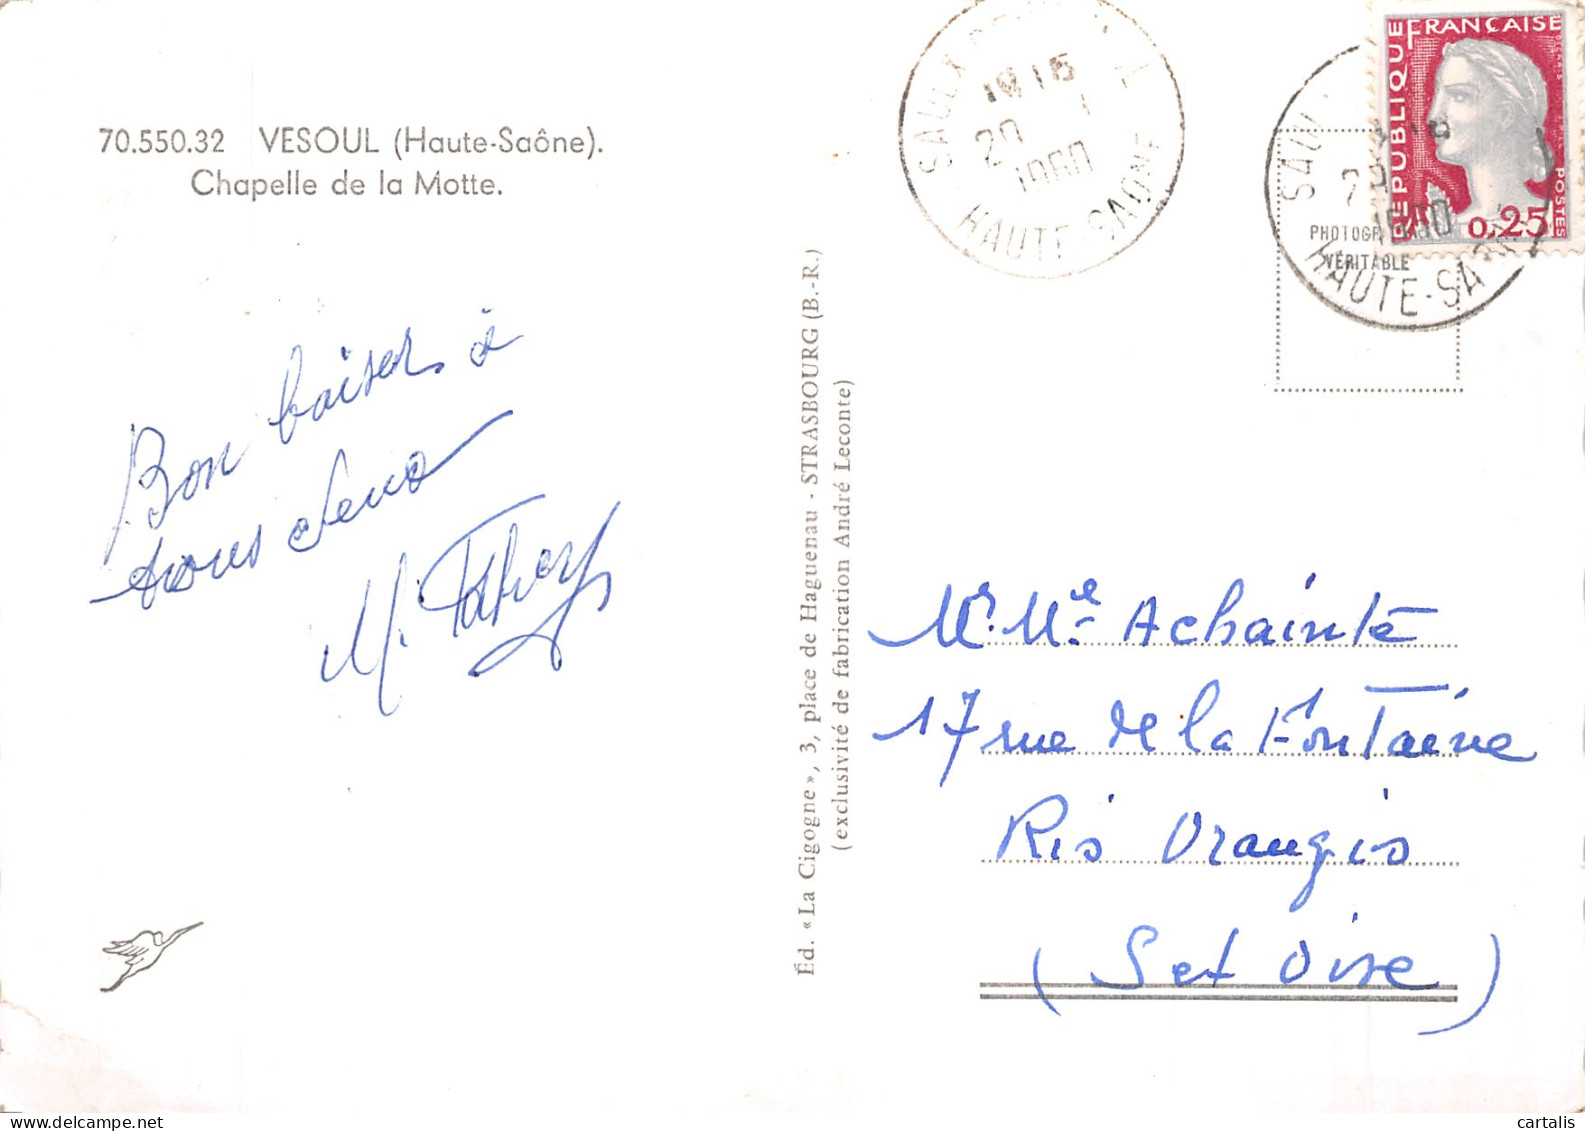 70.550.32 VESOUL (Haute-Saône).
Chapelle de la Motte.
Bon baisers à
tous deux
M.
Éd. « La Cigogne », 3, place de Haguenau - STRASBOURG (B.-R.)
(exclusivité de fabrication André Leconte)
SAULX
20 1
1960
HAUTE-SAONE
RÉPUBLIQUE FRANÇAISE
0,25
POSTES
PHOTOGR
VÉRITABLE
SAU
HAUTE-SA
Mr. Me Achainté
17 rue de la Fontaine
Ris Orangis
(S et Oise)
cartalis